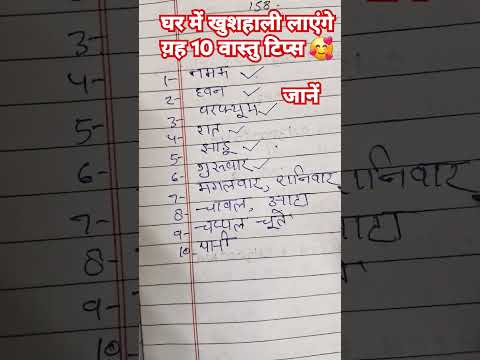 158
घर में खुशहाली लाएंगे
ग्रह 10 वास्तु टिप्स 🥰
जानें
1- नमक ✓
2- हवन ✓
3- वरक्यूम ✓
4- रात ✓
5- झाडू ✓
6- गुरुवार ✓
7- मंगलवार, शनिवार
8- चावल, आटा
9- चप्पल जूते
10- पानी
3-
4-
5-
6-
7-
8-
9-
10-